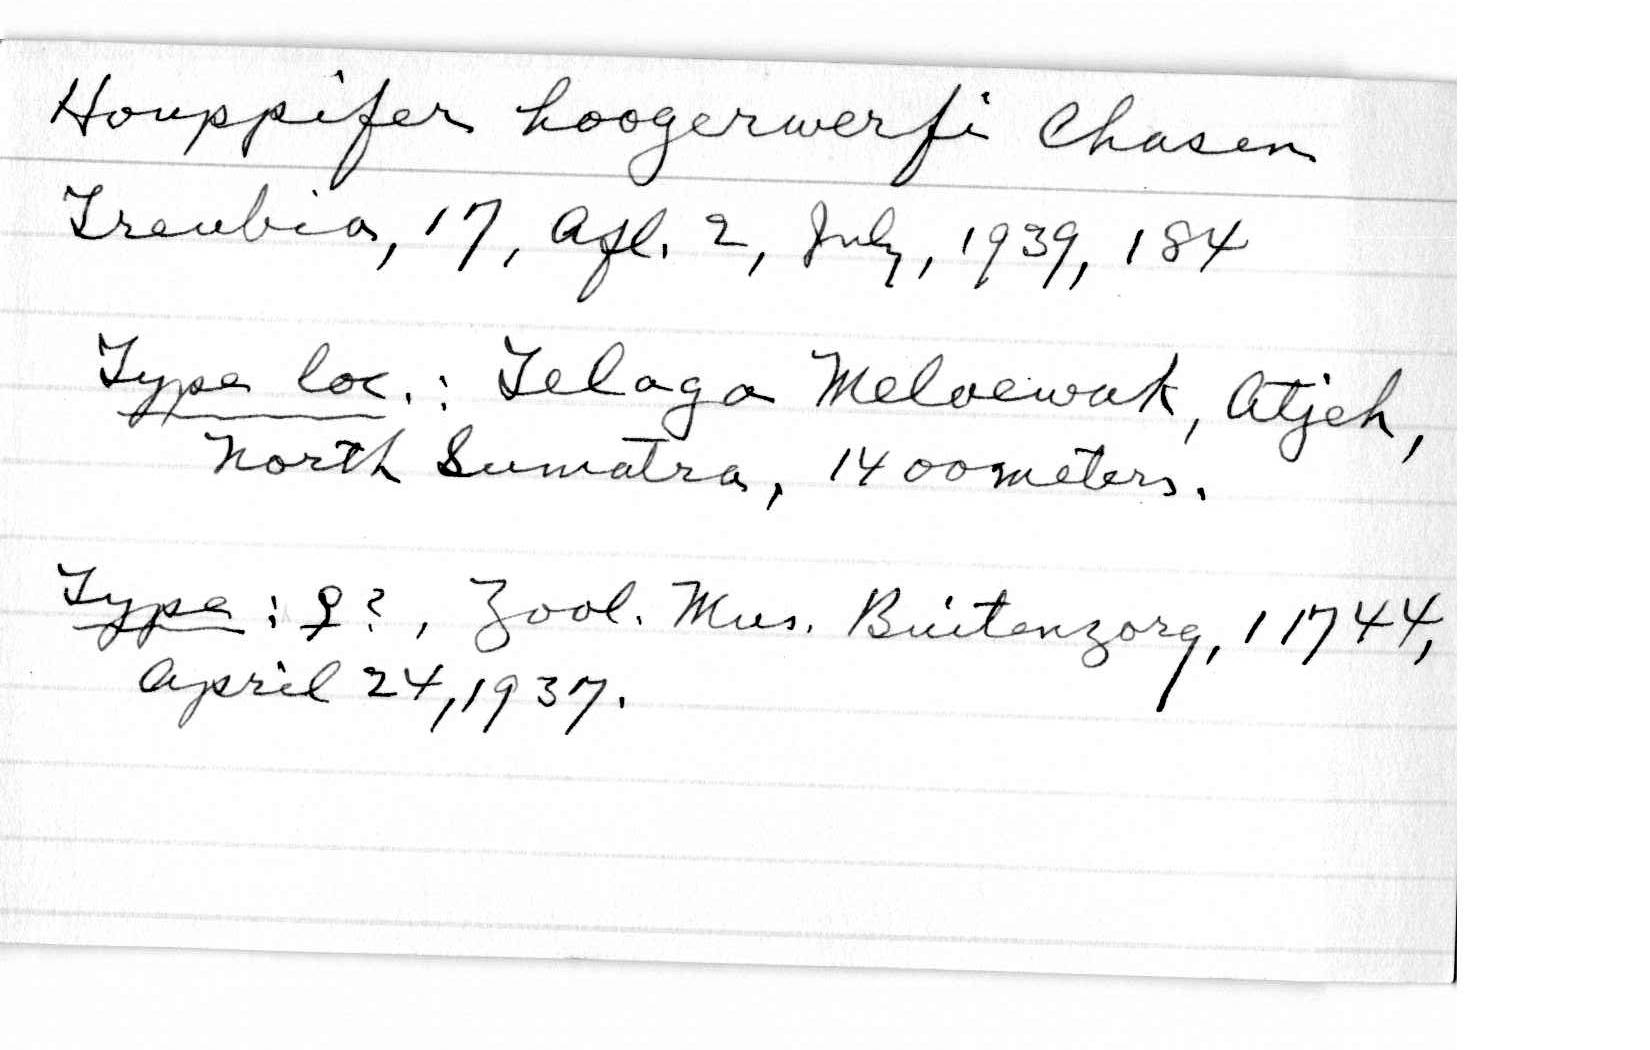 Houppifer hoogerwerfi Chasen
Treubia, 17, Afl. 2, July, 1939, 184
Type loc.: Telaga Meloewak, Atjeh,
North Sumatra, 1400 meters.
Type: ♀?, Zool. Mus. Buitenzorg, 11744,
April 24, 1937.